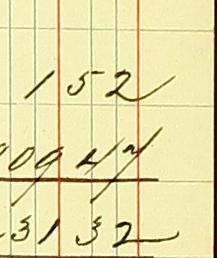 152
90947
3132